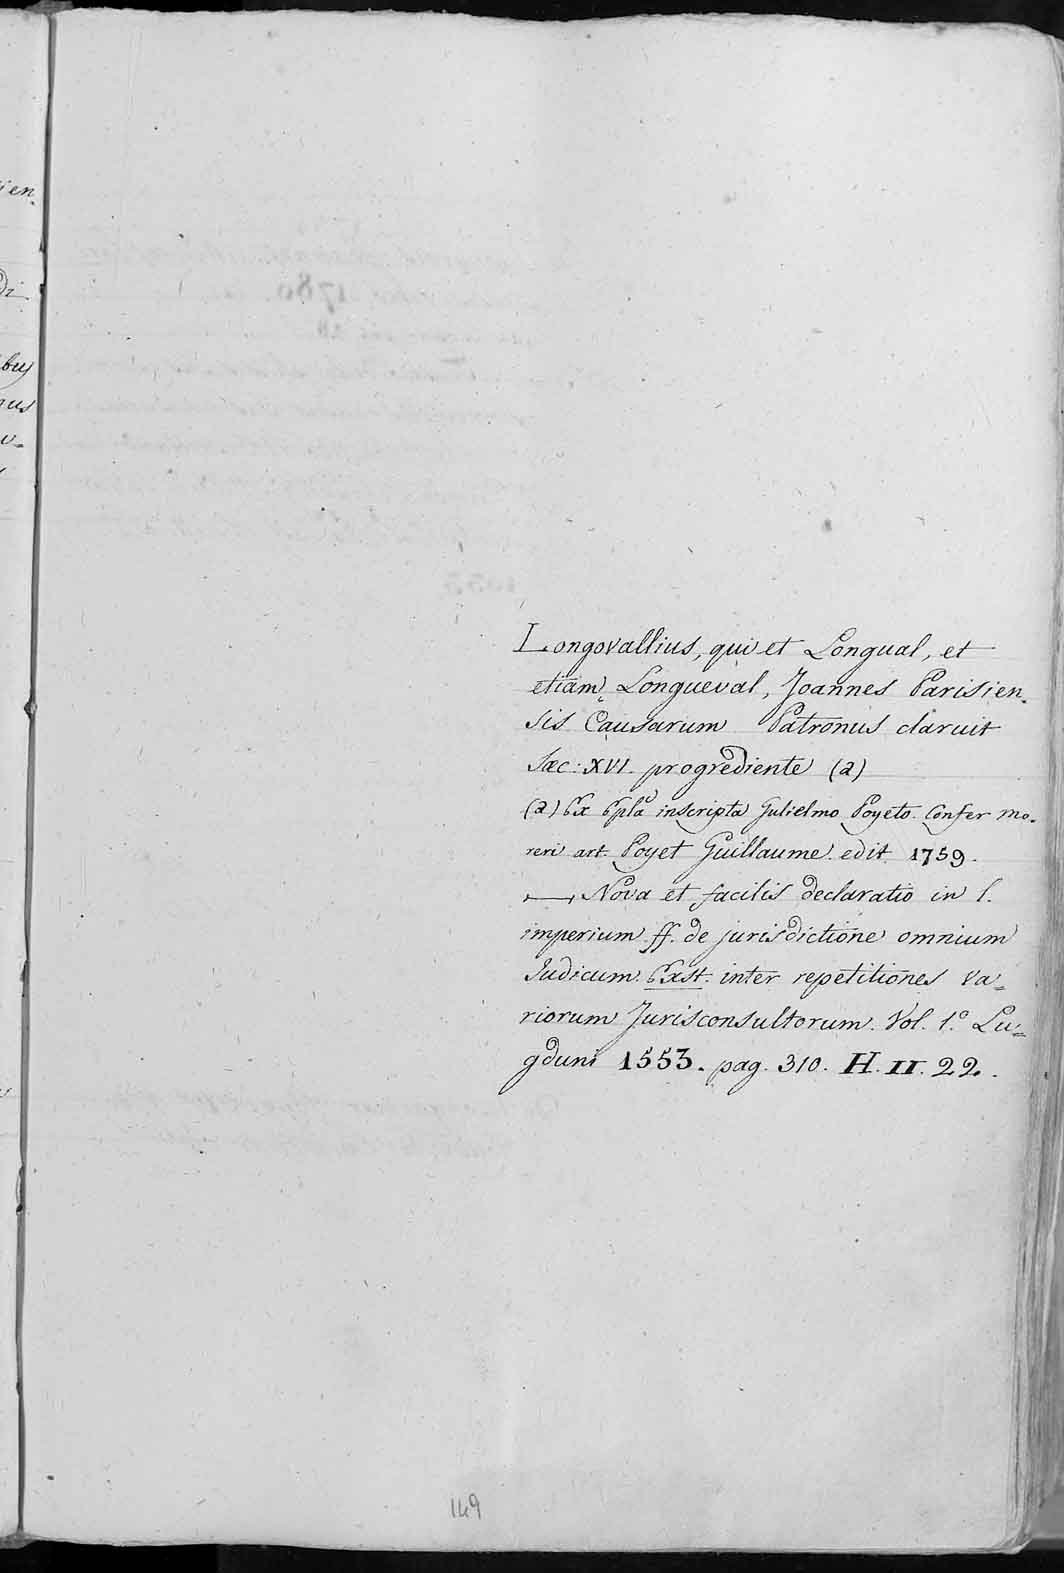 Longovallius, qui et Longual, et
etiam Longueval, Joannes Parisien-
sis Causarum Patronus claruit
Sæc. XVI. progrediente (a)
(a) Ex Epla inscripta Gulielmo Poyeto. Confer Mo-
reri art. Poyet Guillaume. edit. 1759.
Nova et facilis declaratio in l.
imperium ff. de jurisdictione omnium
Judicum. Exst. inter repetitiones va=
riorum Jurisconsultorum. Vol. 1.º Lu=
gduni 1553. pag. 310. H. II. 22.
149